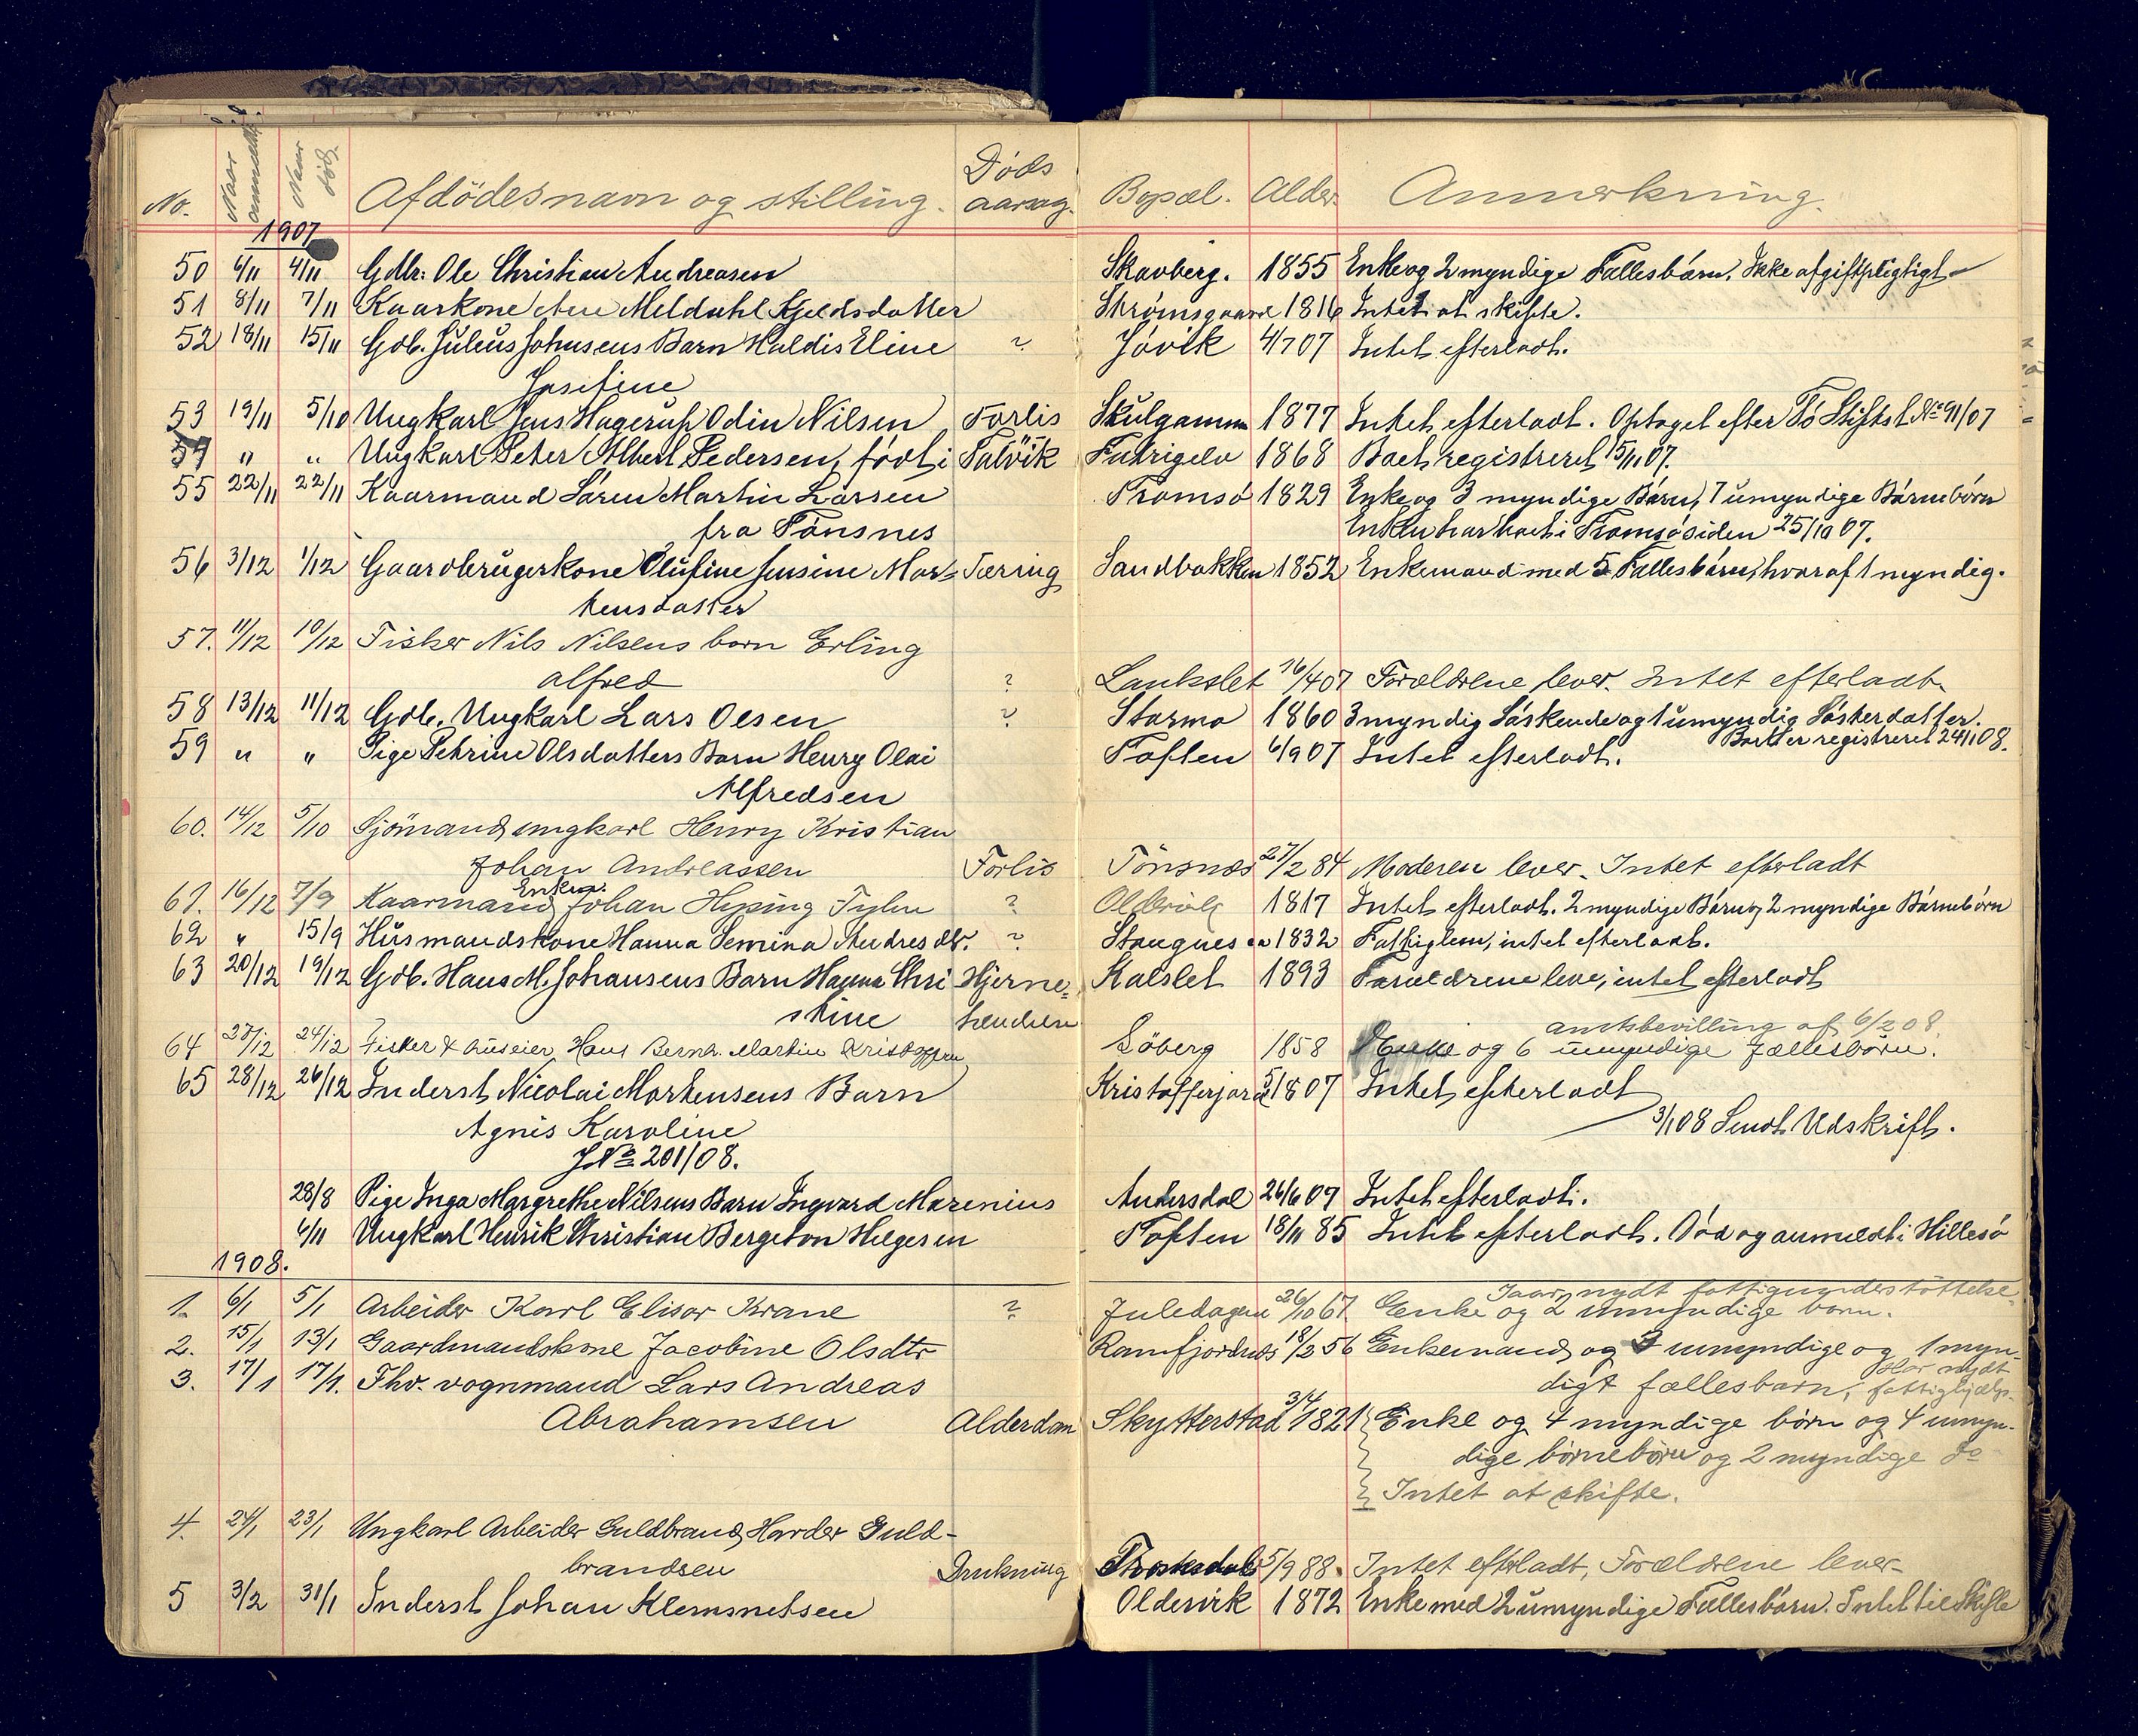 No. Naar anmeldt. Naar död. Afdödes navn og stilling. Döds aarsag. Bopæl. Alder. Anmerkning.
1907
50 6/11 4/11 Gdbr: Ole Christian Andreasen Skavberg. 1855 Enke og 2 myndige Fællesbørn. Ikke afgiftspligtigt
51 8/11 7/11 Kaarkone Ane Meldahl Kjeldsdatter Strømsgaard 1816 Intet at skifte.
52 18/11 15/11 Gdb. Julius Johnsens Barn Haldis Eline ? Jøvik 4/7 07 Intet efterladt.
Josefine
53 19/11 5/10 Ungkarl Jens Hagerup Odin Nilsen Forlis Skulgamm 1877 Intet efterladt. Optaget efter Tø Skifts J No 91/07
54 " " Ungkarl Peter Albert Pedersen, født i Talvik Futrigelv 1868 Boet registreret 15/11 07.
55 22/11 22/11 Kaarmand Søren Martin Larsen Tromsø 1829 Enke og 3 myndige Børn, 7 umyndige Børnebørn
fra Tønsnes Enken har boet i Tromsø siden 25/10 07.
56 3/12 1/12 Gaardbrugerkone Olufine Jensine Mor= Tæring Sandbakken 1852 Enkemand med 5 Fællesbørn, hvoraf 1 myndig.
tensdatter
57. 11/12 10/12 Fisker Nils Nilsens barn Erling
alfred ? Lankslet 16/4 07 Forældrene lever. Intet efterladt
58 13/12 11/12 Gdb. Ungkarl Lars Olsen ? Stormo 1860 3 myndig Søskende og 1 umyndig Søsterdatter.
59 " " Pige Petrine Olsdatters Barn Henry Olai Toften 6/9 07 Intet efterladt. Boet er registreret 24/1 08.
Alfredsen
60. 14/12 5/10 Sjömand, ungkarl Henry Kristian
Johan Andreassen Forlis Tönsnæs 27/2 84 Moderen lever. Intet efterladt
Enkem.
61. 16/12 7/9 Kaarmand Johan Heping ? Oldervik 1817 Intet efterladt. 2 myndige Børn og 2 myndige Børnebørn
62 " 15/9 Husmandskone Hanna Semina Andresdtr. ? Stangnes ca 1832 Fattiglem, intet efterladt.
63 20/12 19/12 Gdb. Hans M. Johansens Barn Hanna Chri Hjerne= Kalslet 1893 Forældrene leve, intet efterladt
stine
amtsbevilling af 6/2 08.
64 27/12 24/12 Fisker & huseier Hans Bernh. Martin Kristoffersen Søberg 1858 Enke og 6 umyndige fællesbörn.
65 28/12 26/12 Inderst Nicolai Mortensens Barn Kristofferjord 5/8 07 Intet efterladt
Agnis Karoline 3/1 08 Sendt Udskrift.
J No 201/08.
28/8 Pige Inga Margrethe Nilsens Barn Ingvard Marenius Andersdal 26/6 07 Intet efterladt.
6/11 Ungkarl Henrik Christian Bergeton Helgesen Toften 18/11 85 Intet efterladt. Død og anmeldt i Hillesø
1908.
Iaar nydt fattigunderstöttelse
1. 6/1 5/1 Arbeider Karl Elisar Krane ? Juledagen 26/10 67. Enke og 2 umyndige barn.
2. 15/1 13/1 Gaardmandskone Jacobine Olsdtr Ramfjordnæs 18/2 56 Enkemand og 3 umyndige og 1 myn-
3. 17/1 17/1. Fhv. vognmand Lars Andreas digt fællesbarn, Har nydt fattighjælp.
Abrahamsen Alderdom Skytterstad 3/4 1821 Enke og 4 myndige börn og 4 umyn-
dige börnebörn og 2 myndige do
Intet at skifte.
4. 24/1 23/1 Ungkarl Arbeider Guldbrand Harder Guld-
brandsen Drukning 5/9 88. Intet efterladt, Forældrene lever.
5 3/2 31/1 Inderst Johan Klemmetsen Oldervik 1872 Enke med 2 umyndige Fællesbørn. Intet til Skifte